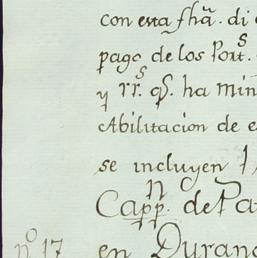 con esta fhã. di
pago de los Port.s
y rr.s q.s ha min
Abilitacion de e
se incluyen
Capp.n de Pa
n.o 17 en Durang